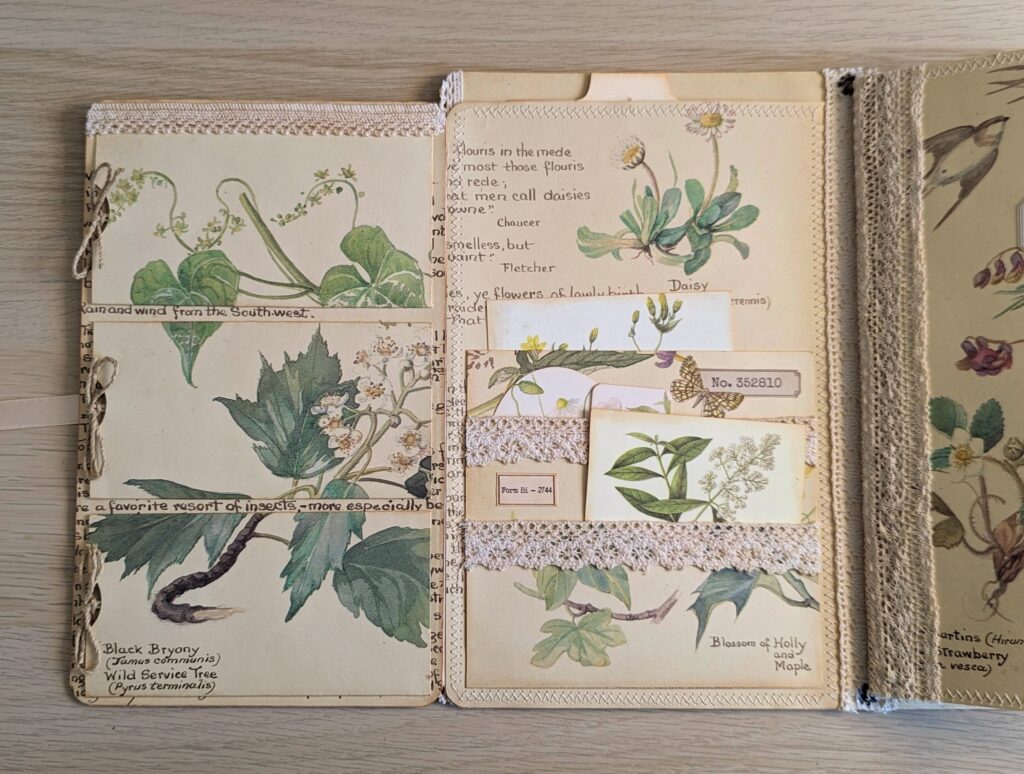 Rain and wind from the South-west.
are a favorite resort of insets,-more especially be
Black Bryony
(Tamus communis)
Wild Service Tree
(Pyrus terminalis)
flouris in the mede
most those flouris
rede;
that men call daisies
Chaucer
smelless, but
quaint."
Fletcher
ye flowers of lowly birth
That
Daisy
No. 352810
Form Bi - 2744
Blossom of Holly
and
Maple
Martins (Hirun
Strawberry
vesca)